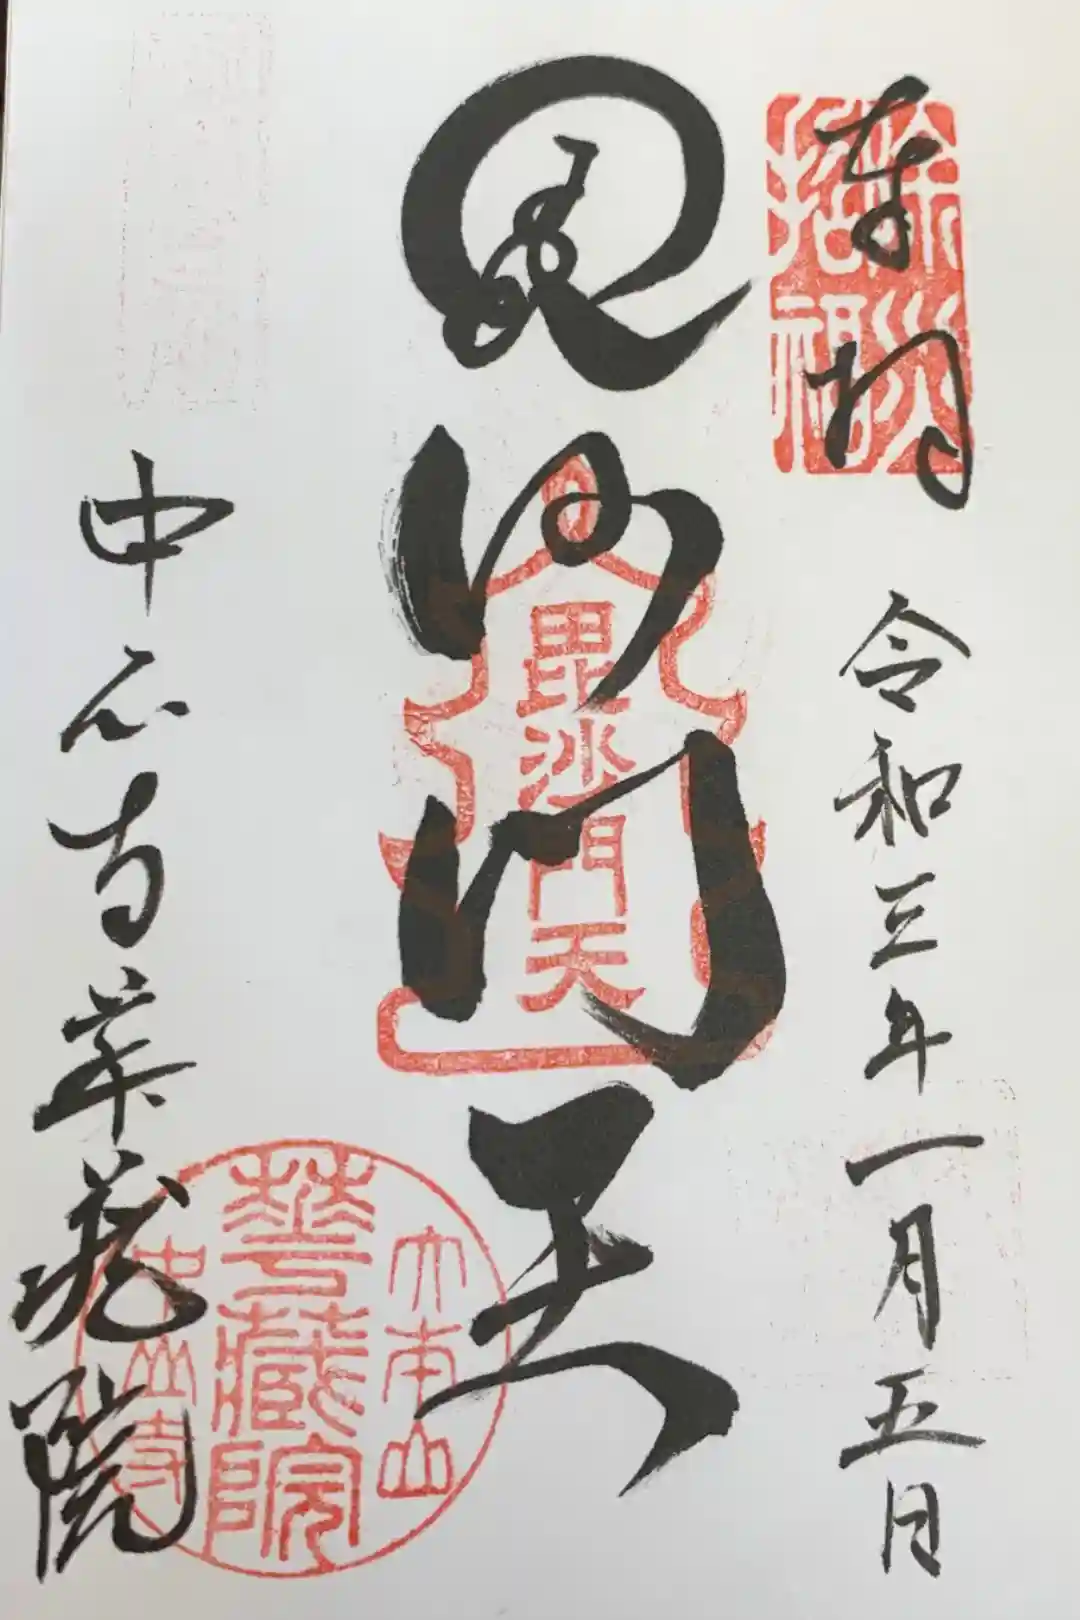 奉拝
除災
招福
令和三年一月五日
毘沙門天
毘沙門天
中山寺華蔵院
大本山
華蔵院
中山寺